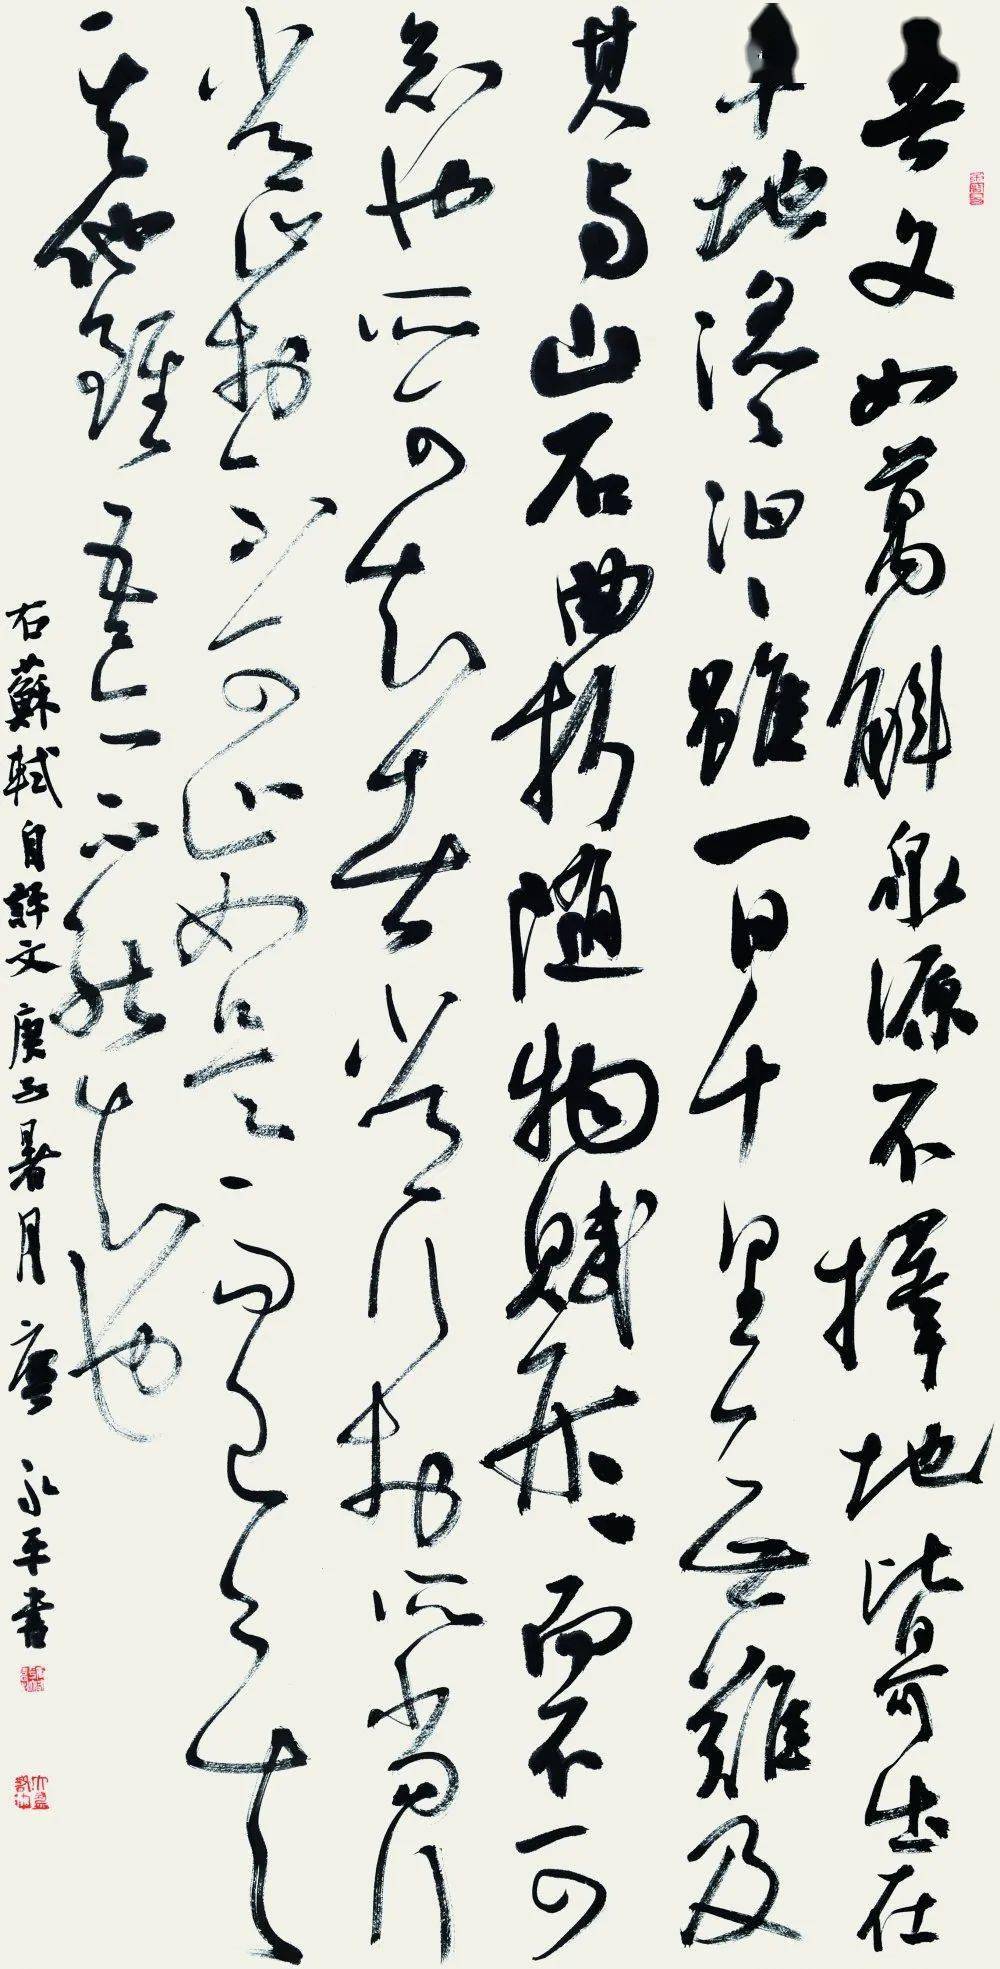 吾文如萬斛泉源不擇地皆可出在
平地滔々汩々雖一日千里無難及
其與山石曲折隨物賦形而不可
知也所可知者常行於所當行
常止於不可止如是而已矣
其他雖吾亦不能知也
右蘇軾自評文庚子暑月唐永平書